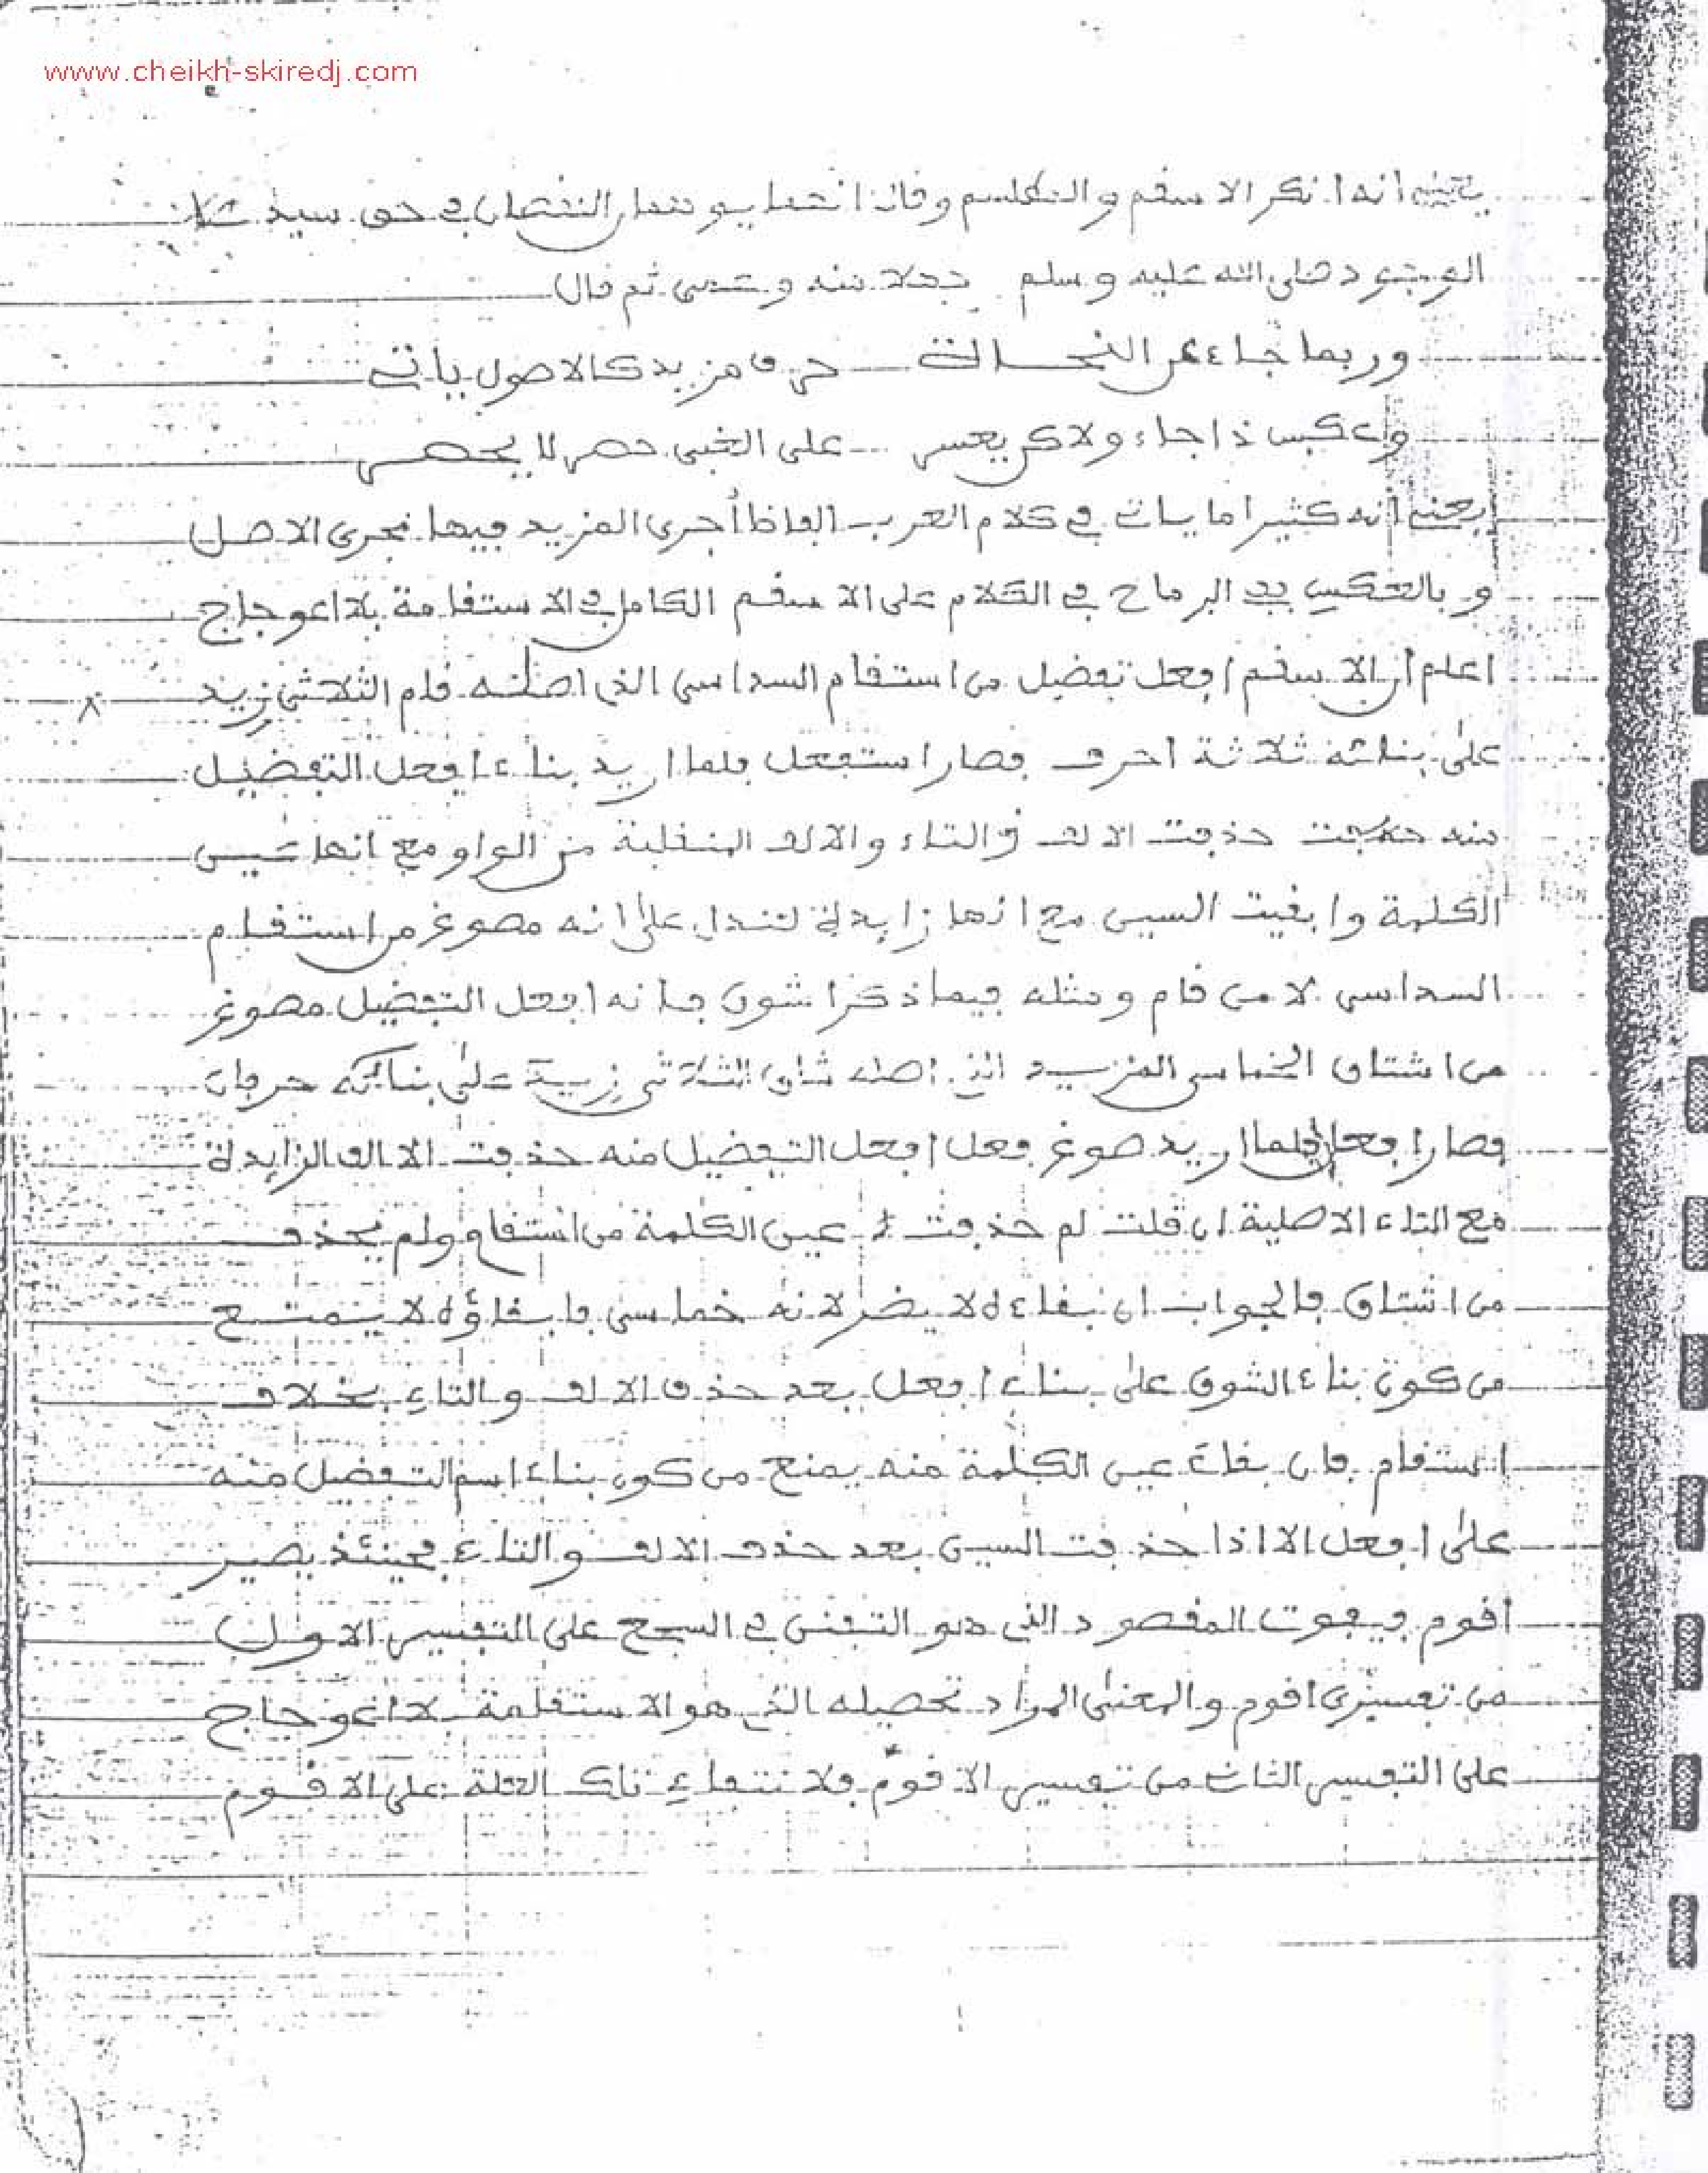 www.cheikh-skiredj.com
انه انكر الاسقم والطلسم وقال انهما يوهمان النقصان في حق سيد
الوجود صلى الله عليه وسلم جهلا منه وعمى ثم قال
وربما جاء عن النحات حرف مزيد كالاصول ياتي
وعكس ذا جاء ولاكن يعسر على الغبي حصر لا يحصر
يعني انه كثيرا ما يات في كلام العرب الفاظ أجرى المزيد فيها مجرى الاصل
وبالعكس الرماح في الكلام على الاسقم الكامل في الاستقامة بلا اعوجاج
اعلم أن الاسقم افعل تفضيل من استقام السداسي الذي اصله قام الثلاثي زيد
على بنائه ثلاثة احرف فصار استفعل فلما اريد بناء افعل التفضيل
منه حذفت الالف والتاء والالف المنقلبة من الواو مع انها عين
الكلمة وابقيت السين مع انها زايدة لتدل على انه مصوغ من استقام
السداسي لا من قام ومثله فيما ذكر اشوق فانه افعل التفضيل مصوغ
من اشتاق الخماسي المزيد الذي اصله شاق الثلاثي زيد على بنائه حرفان
فصار افتعل فلما اريد صوغ فعل افعل التفضيل منه حذفت الالف الزايدة
مع التاء الاصلية ان قلت لم حذفت عين الكلمة من استقام ولم يحذف
من اشتاق فالجواب ان بقاءه لا يضر لانه خماسي فابقاؤه لا يمنع
من كون بناء اشوق على بناء افعل بعد حذف الالف والتاء بخلاف
استقام فان بقاء عين الكلمة منه يمنع من كون بناء اسم التفضيل منه
على افعل الا اذا حذفت السين بعد حذف الالف والتاء فحينئذ يصير
أقوم ويفوت المقصود الذي هو التفنن في السجع على التفسير الاول
من تفسيري اقوم والمعنى المراد تحصيله الذي هو الاستقامة بلا اعوجاج
على التفسير الثاني من تفسير الاقوم فلا نتفاء تلك العلة على الاقوم